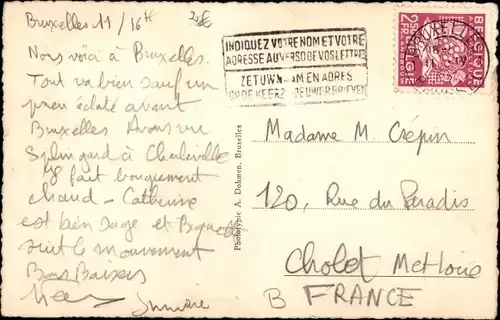 Bruxelles 11/16H
Nous voici à Bruxelles.
Tout va bien sauf un
pneu éclaté avant
Bruxelles Avons vu
à Charleville
fait bougrement
chaud - Catherine
est bien sage et
suit le mouvement
Bons Baisers
INDIQUEZ VOTRE NOM ET VOTRE
ADRESSE AU VERSO DE VOS LETTRES
ZET UW NAAM EN ADRES
OP DE KEERZIJDE UWER BRIEVEN
BELGIQUE
BELGIË
Phototypie A. Dohmen, Bruxelles
Madame M. Crépin
120, Rue du Paradis
Cholet M et Loire
B FRANCE